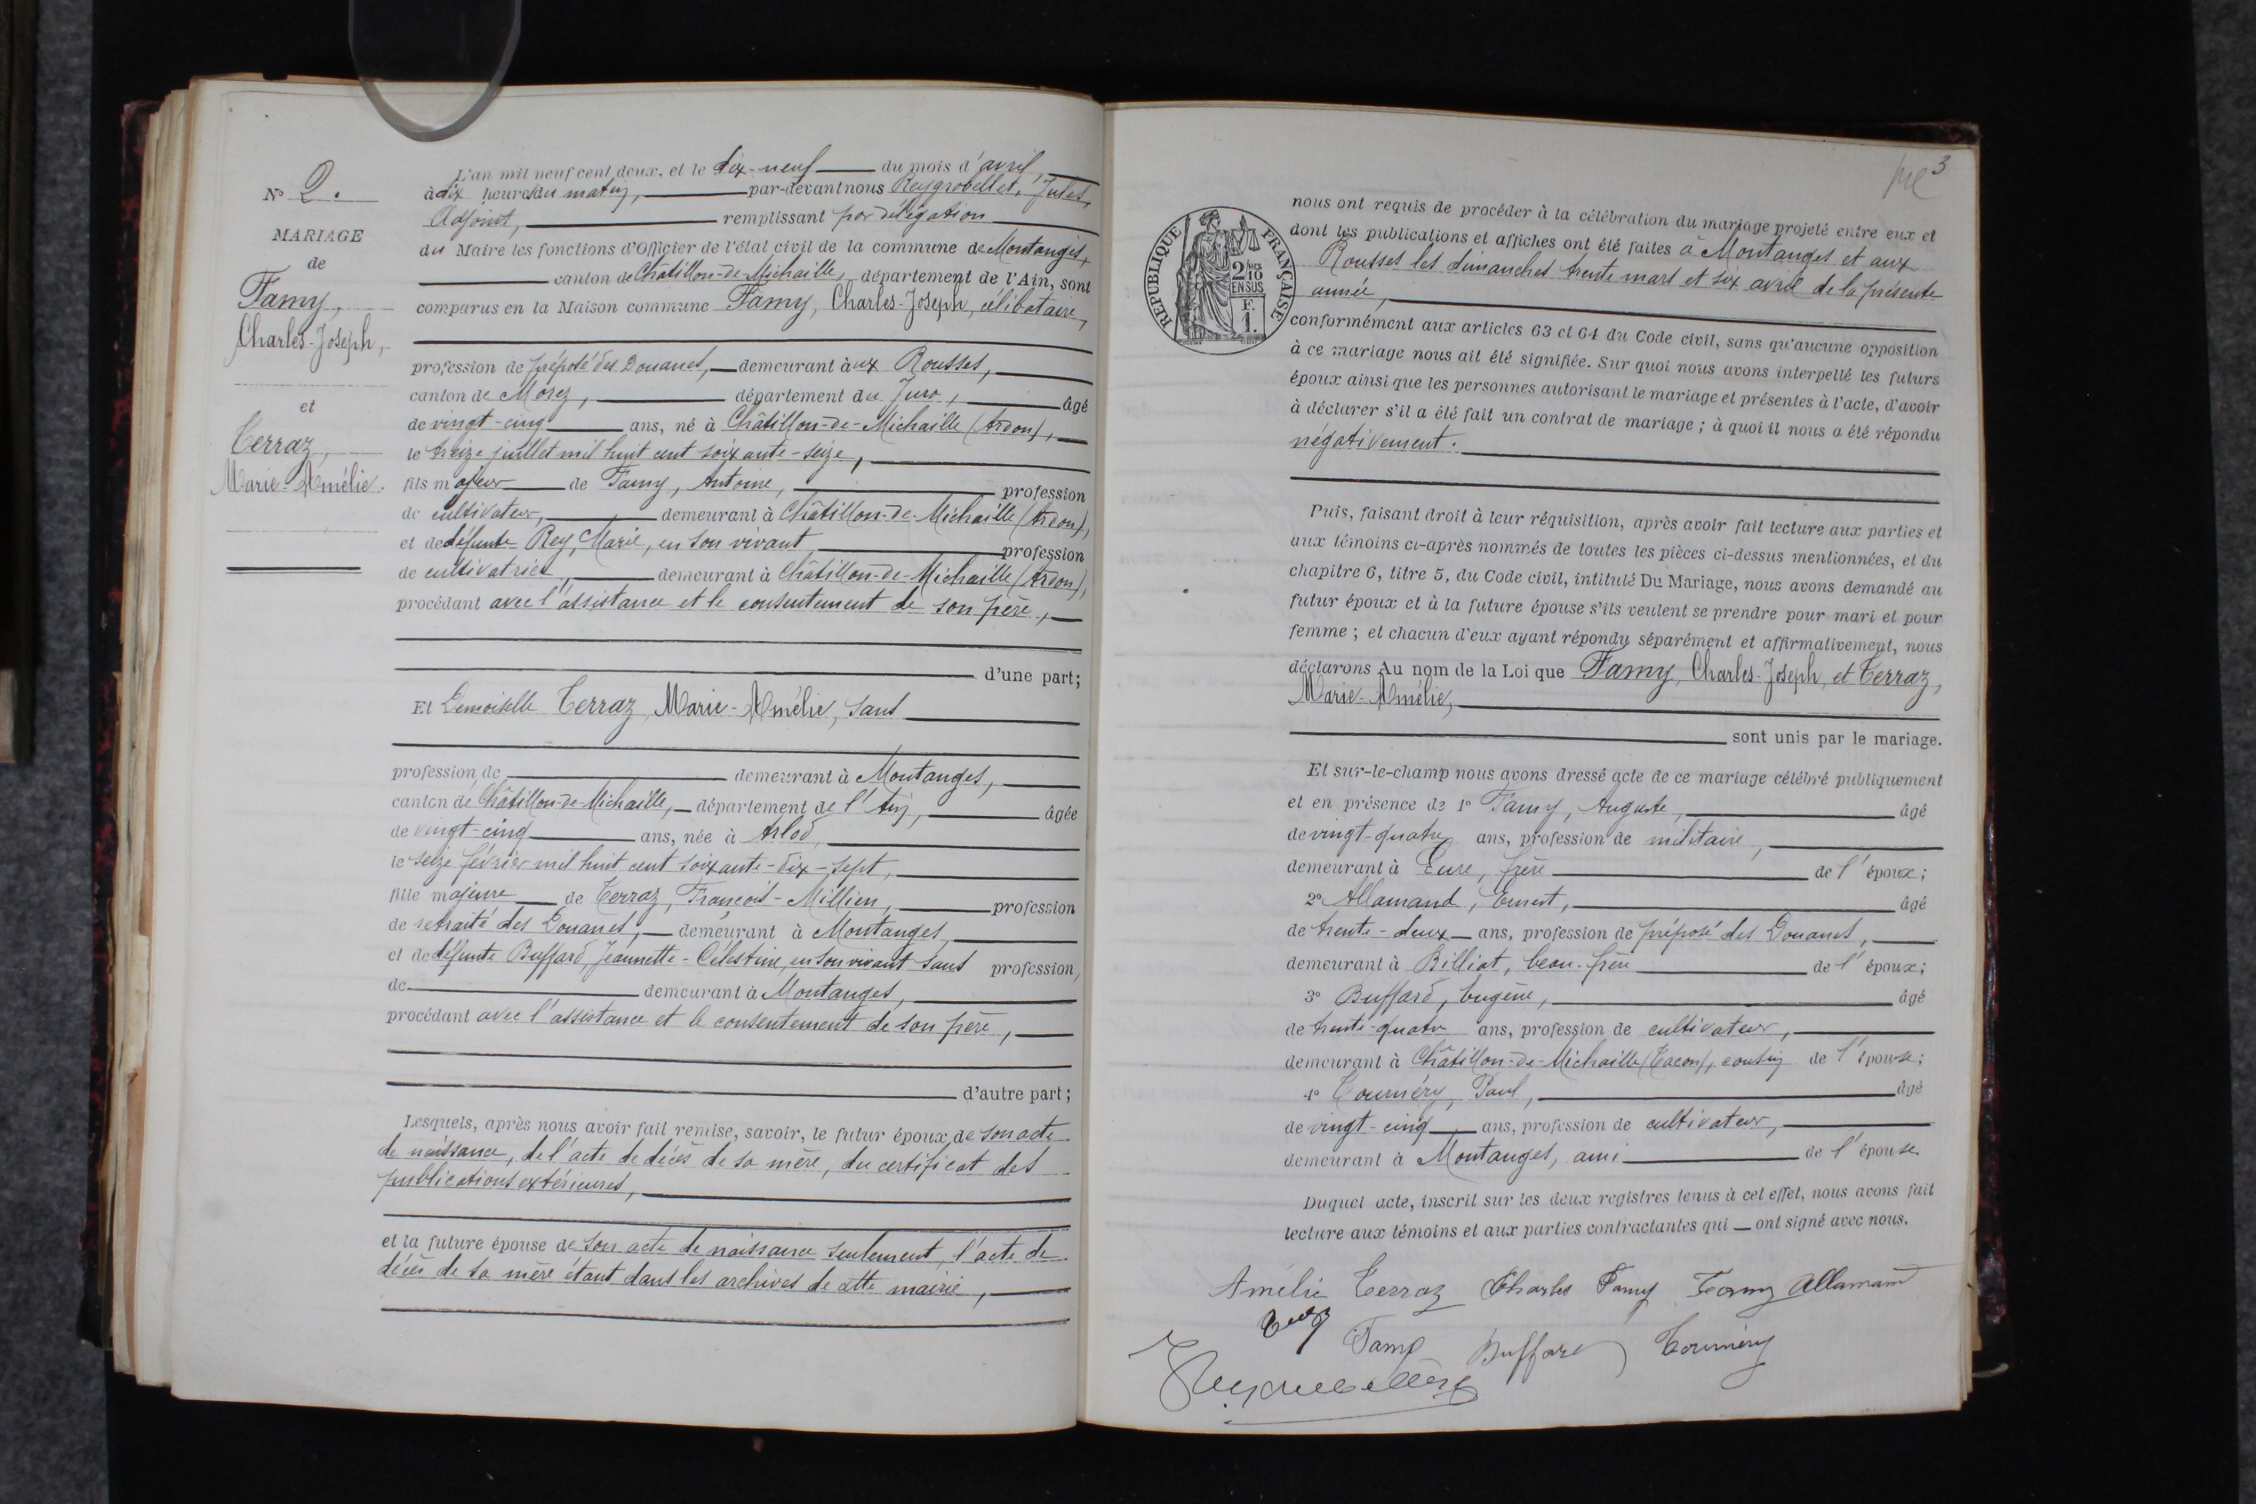 N° 2.
MARIAGE
de
Famy,
Charles-Joseph,
et
Terraz,
Marie-Amélie.
L'an mil neuf cent deux, et le dix-neuf du mois d'avril,
à dix heures du matin, par-devant nous Reygrobellet, Jules,
Adjoint, remplissant par délégation
du Maire les fonctions d'Officier de l'état civil de la commune de Montanges,
canton de Châtillon-de-Michaille, département de l'Ain, sont
comparus en la Maison commune Famy, Charles-Joseph, célibataire,
profession de préposé des Douanes, demeurant aux Rousses,
canton de Morez, département du Jura, âgé
de vingt-cinq ans, né à Châtillon-de-Michaille (Ardon),
le treize juillet mil huit cent soixante-seize,
fils majeur de Famy, Antoine, profession
de cultivateur, demeurant à Châtillon-de-Michaille (Ardon),
et de défunte Rey, Marie, en son vivant, profession
de cultivatrice, demeurant à Châtillon-de-Michaille (Ardon),
procédant avec l'assistance et le consentement de son père,
d'une part;
Et Demoiselle Terraz, Marie-Amélie, sans
profession de demeurant à Montanges,
canton de Châtillon-de-Michaille, département de l'Ain, âgée
de vingt-cinq ans, née à Arlod,
le seize février mil huit cent soixante-dix-sept,
fille majeure de Terraz, François-Millien, profession
de retraité des Douanes, demeurant à Montanges,
et de défunte Buffard, Jeannette-Célestine, en son vivant sans profession,
de demeurant à Montanges,
procédant avec l'assistance et le consentement de son père,
d'autre part;
Lesquels, après nous avoir fait remise, savoir, le futur époux, de son acte
de naissance, de l'acte de décès de sa mère, du certificat des
publications extérieures,
et la future épouse de son acte de naissance seulement, l'acte de
décès de sa mère étant dans les archives de cette mairie,
3
RÉPUBLIQUE FRANÇAISE
2/10
EN SUS
F.
1.
nous ont requis de procéder à la célébration du mariage projeté entre eux et
dont les publications et affiches ont été faites à Montanges et aux
Rousses les dimanches trente mars et six avril de la présente
année,
conformément aux articles 63 et 64 du Code civil, sans qu'aucune opposition
à ce mariage nous ait été signifiée. Sur quoi nous avons interpellé les futurs
époux ainsi que les personnes autorisant le mariage et présentes à l'acte, d'avoir
à déclarer s'il a été fait un contrat de mariage; à quoi il nous a été répondu
négativement.
Puis, faisant droit à leur réquisition, après avoir fait lecture aux parties et
aux témoins ci-après nommés de toutes les pièces ci-dessus mentionnées, et du
chapitre 6, titre 5, du Code civil, intitulé Du Mariage, nous avons demandé au
futur époux et à la future épouse s'ils veulent se prendre pour mari et pour
femme; et chacun d'eux ayant répondu séparément et affirmativement, nous
déclarons Au nom de la Loi que Famy, Charles-Joseph, et Terraz,
Marie-Amélie,
sont unis par le mariage.
Et sur-le-champ nous avons dressé acte de ce mariage célébré publiquement
et en présence de 1° Famy, Auguste, âgé
de vingt-quatre ans, profession de militaire,
demeurant à Eure, frère de l'époux;
2° Allamand, Ernest, âgé
de trente-deux ans, profession de préposé des Douanes,
demeurant à Billiat, beau-frère de l'époux;
3° Buffard, Eugène, âgé
de trente-quatre ans, profession de cultivateur,
demeurant à Châtillon-de-Michaille (Tacon), cousin de l'épouse;
4° Tournéry, Paul, âgé
de vingt-cinq ans, profession de cultivateur,
demeurant à Montanges, ami de l'épouse.
Duquel acte, inscrit sur les deux registres tenus à cet effet, nous avons fait
lecture aux témoins et aux parties contractantes qui ont signé avec nous.
Amélie Terraz Charles Famy Famy Allamand
Famy Buffard Tournéry